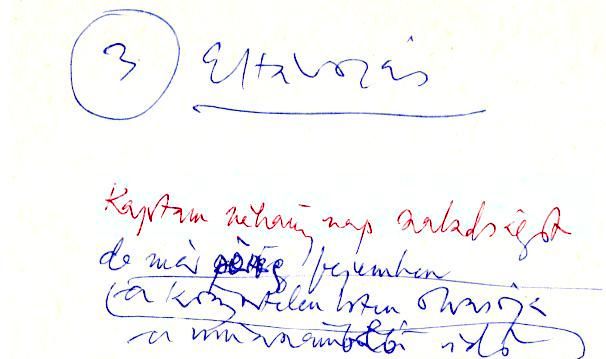 3 Eltávozás
Kaptam néhány nap szabadságot
de már fejemben
a könyörtelen Isten olvasója
a idő